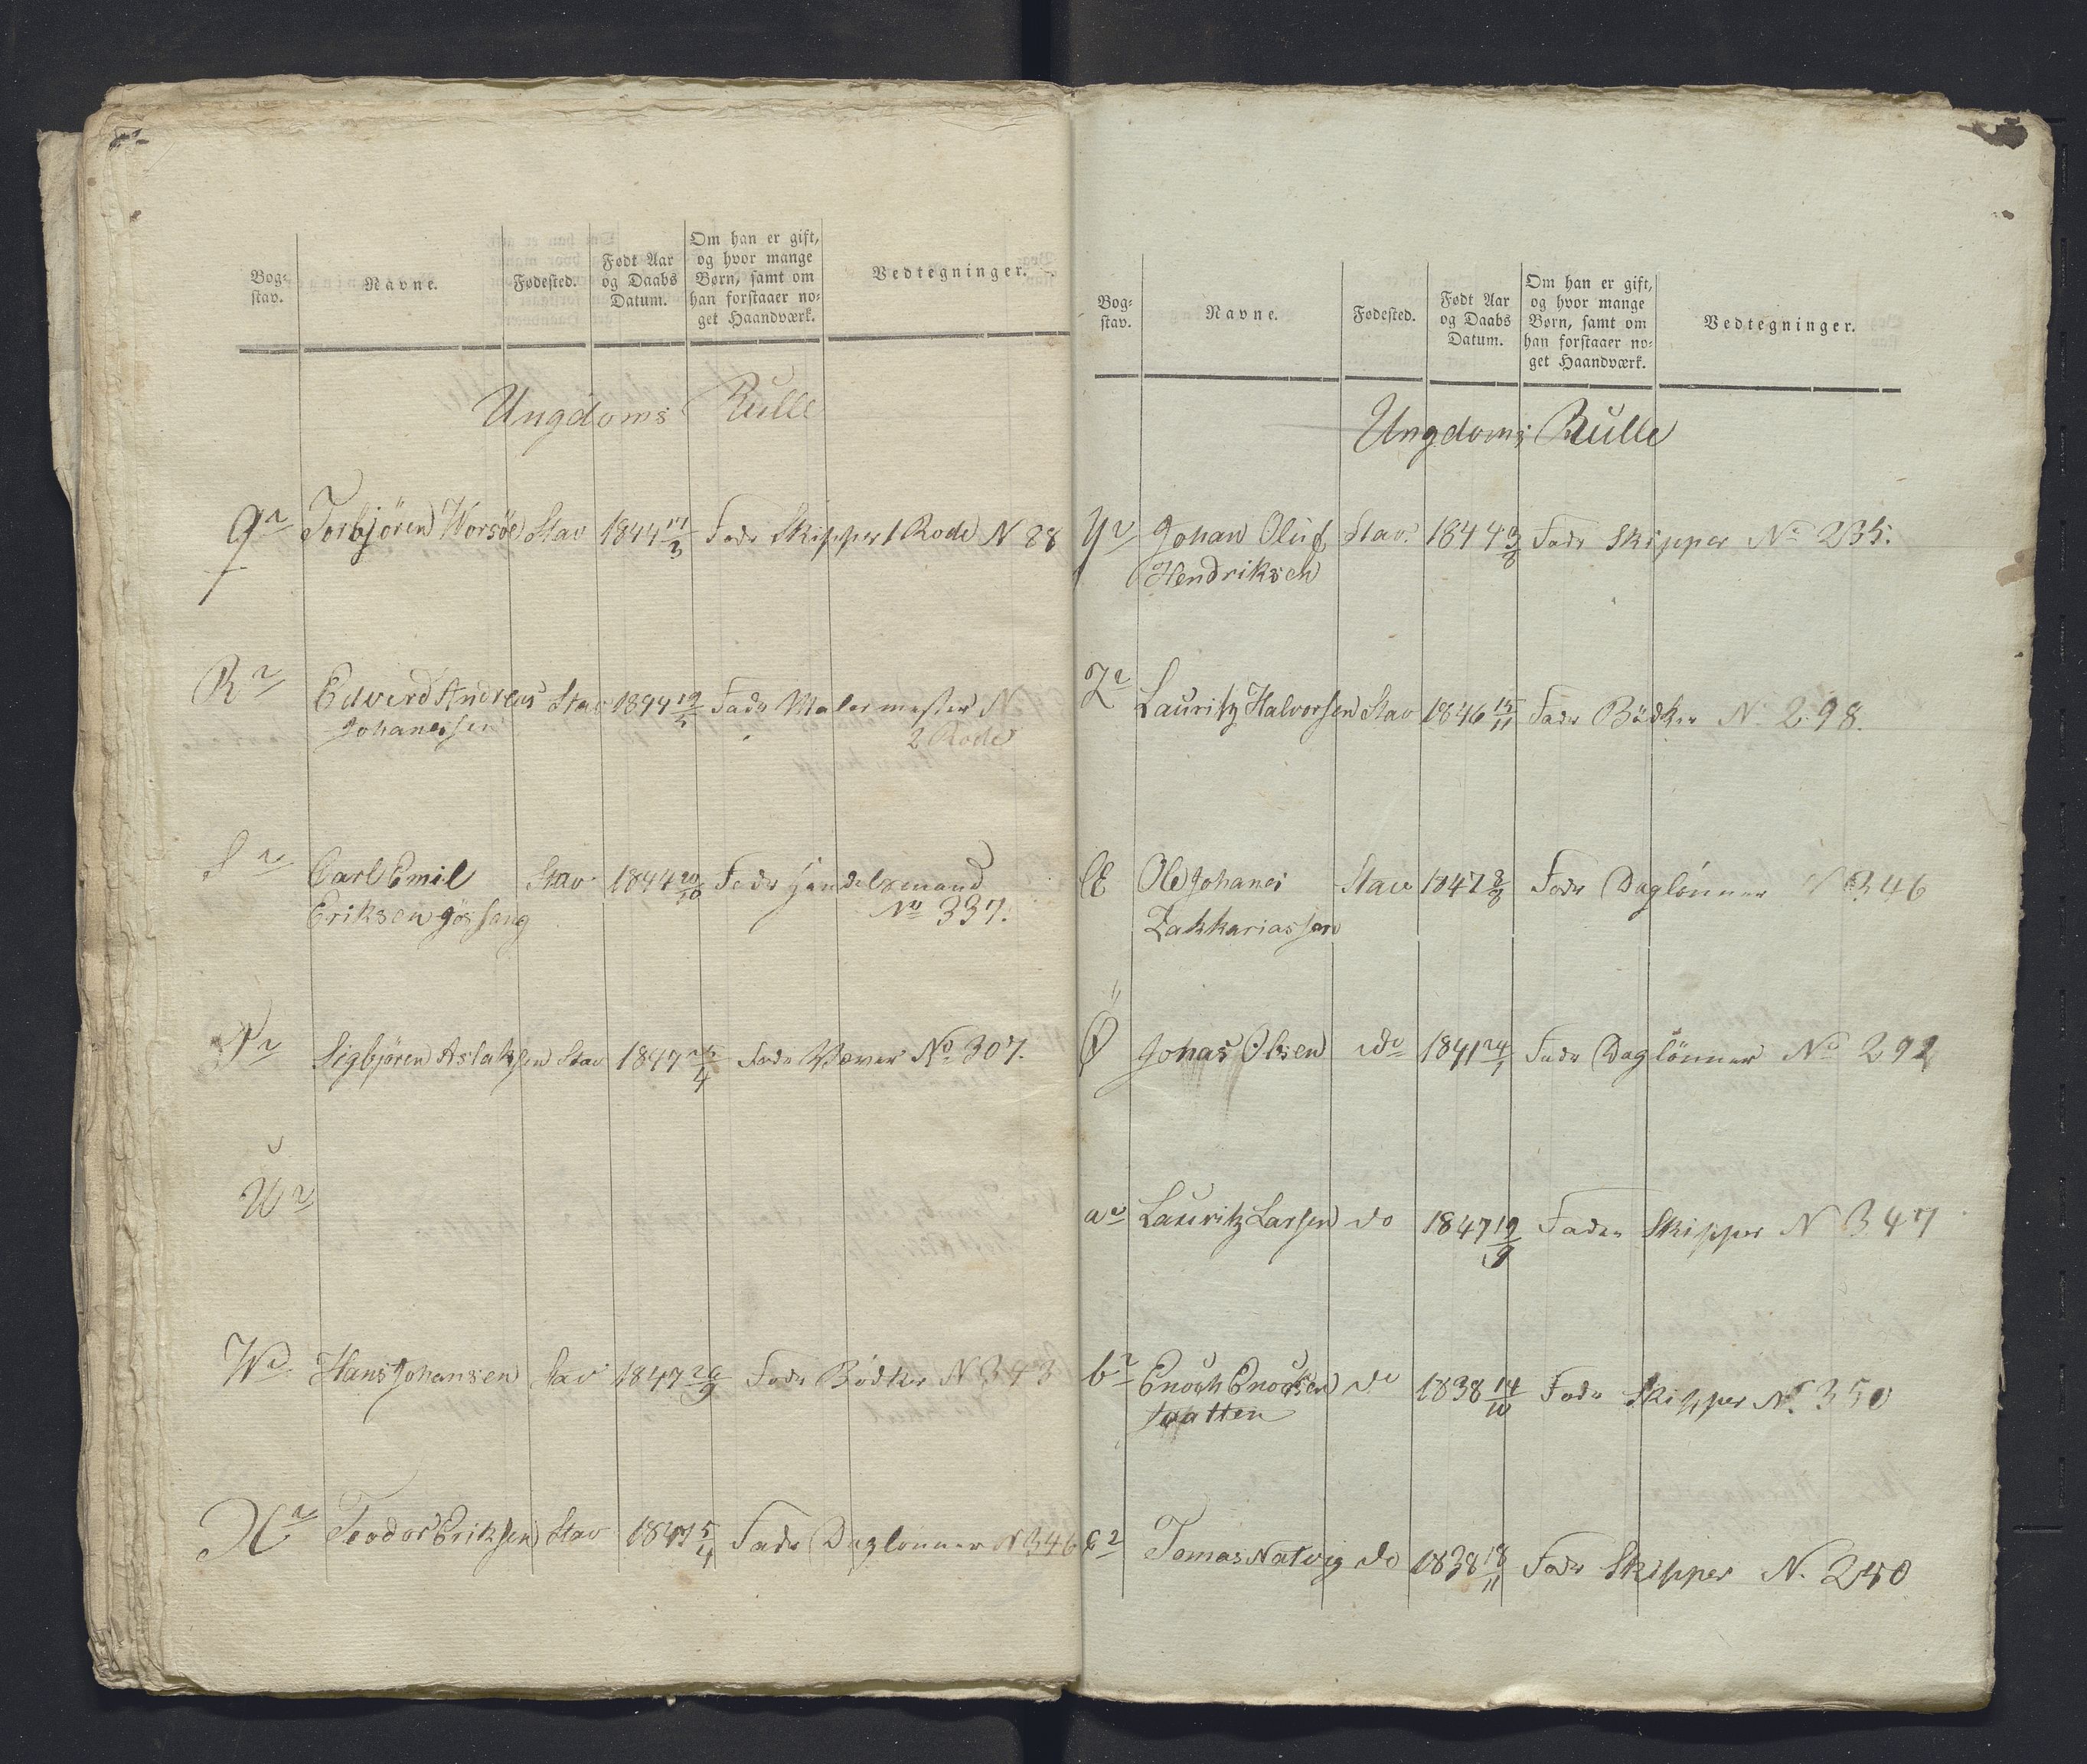 Bog-
stav.
Navne.
Fødested.
Født Aar
og Daabs
Datum.
Om han er gift,
og hvor mange
Børn, samt om
han forstaaer no-
get Haandværk.
Vedtegninger.
Ungdoms Rulle
Torbjören Worsöe Stav 1844 17/3 Fadr Skipper 1 Rode N 88
R Edverd Andreas Stav 1844 19/5 Fadr Malermester N
Johanessen 2 Rode
S Carl Emil Stav 1844 20/10 Fadr Handelsmand
Eriksen No 337.
Sigbjören Aslaksen Stav 1847 25/4 Fadr Væver No 307.
U
W Hans Johansen Stav 1847 26/9 Fadr Bödker N 343
X Teodor Eriksen Stav 1847 5/4 Fadr Daglonner N 346
Bog-
stav.
Navne.
Fødested.
Født Aar
og Daabs
Datum.
Om han er gift,
og hvor mange
Børn, samt om
han forstaaer no-
get Haandværk.
Vedtegninger.
Ungdoms Rulle
Y Johan Oluf Stav. 1844 3/8 Fadr Skipper No 235.
Hendriksen
Z Lauritz Halvorsen Stav 1846 15/11 Fadr Bödker N. 298.
Æ Ole Johanes Stav 1847 8/8 Fadr Daglönner N 346
Zakkariassen
Ø Johas Olsen do 1841 24/1 Fadr Daglönner No 292
a Lauritz Larsen do 1847 19/9 Fader Skipper N 347
b Enoch Enocksen do 1838 14/10 Fadr Skipper N. 350
Tomas Natvig do 1838 18/11 Fadr Skipper N. 250